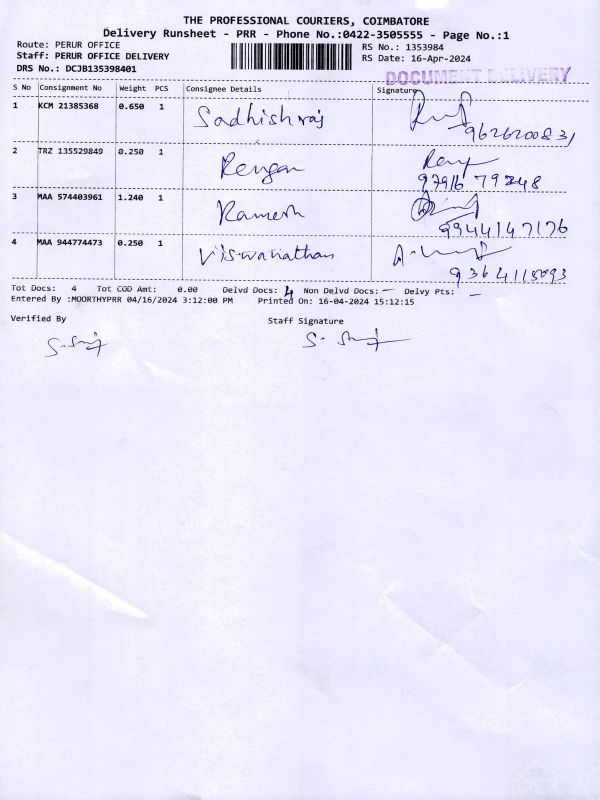 THE PROFESSIONAL COURIERS, COIMBATORE
Delivery Runsheet - PRR - Phone No.:0422-3505555 - Page No.:1
Route: PERUR OFFICE
RS No.: 1353984
Staff: PERUR OFFICE DELIVERY
RS Date: 16-Apr-2024
DRS No.: DCJB135398401
DOCUMENT DELIVERY
S No Consignment No Weight PCS Consignee Details Signature
1 KCM 21385368 0.650 1 Sadhishraj
9626200831
2 TRZ 135529849 0.250 1 Rengan
97916 79248
3 MAA 574403961 1.240 1 Ramesh
9944147176
4 MAA 944774473 0.250 1 Viswanathan
9364118093
Tot Docs: 4 Tot COD Amt: 0.00 Delvd Docs: 4 Non Delvd Docs: — Delvy Pts: —
Entered By :MOORTHYPRR 04/16/2024 3:12:00 PM Printed On: 16-04-2024 15:12:15
Verified By Staff Signature